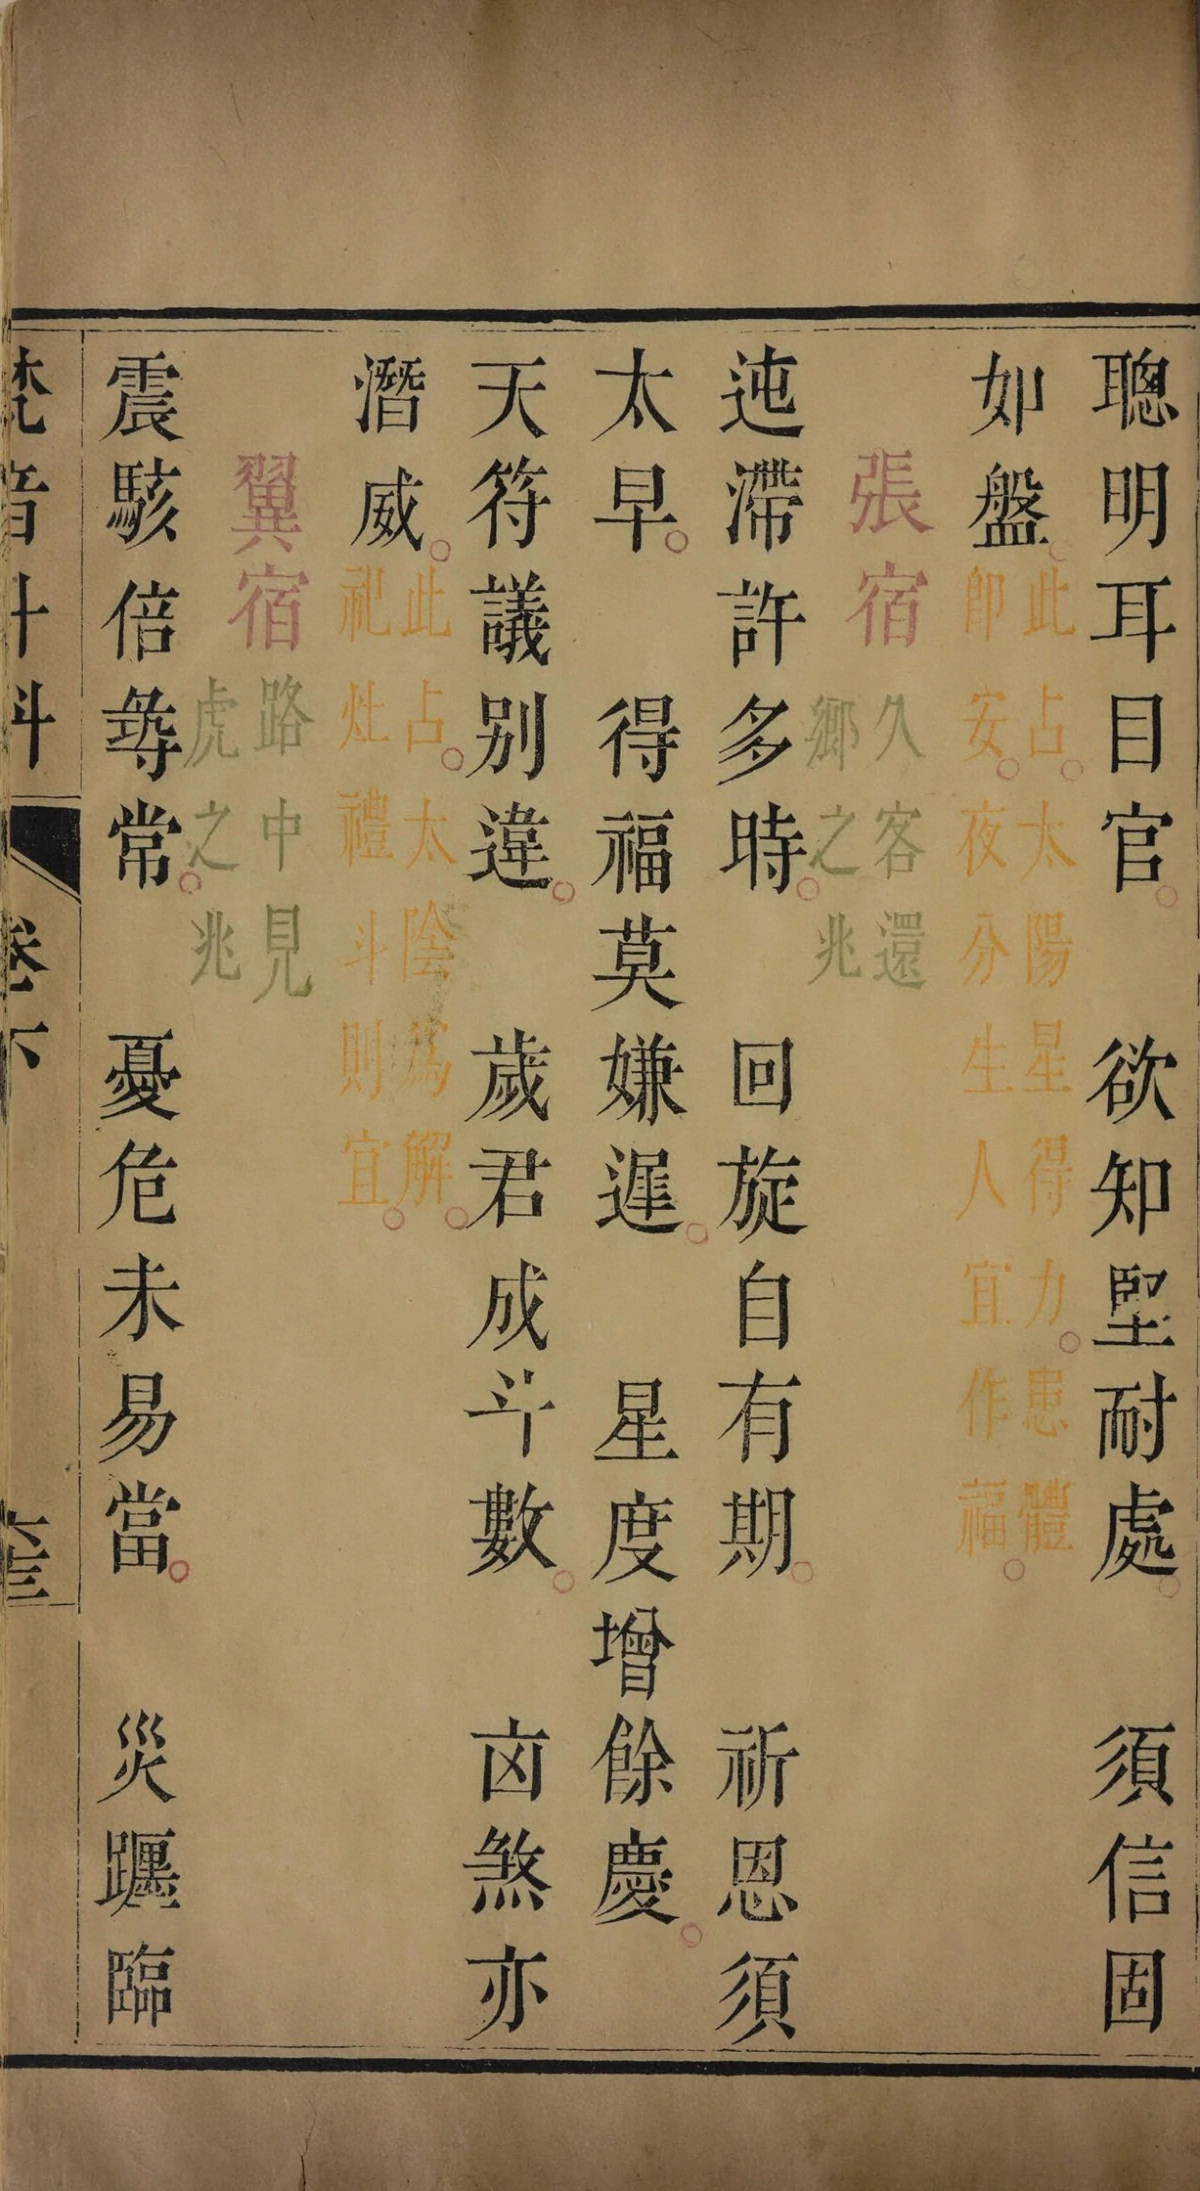 聰明耳目官。　欲知堅耐處。　須信固
如盤。此占。太陽星得力。患體
即安。夜分生人宜作福。
張宿　久客還
鄉之兆
迍滯許多時。　回旋自有期。　祈恩須
太早。　得福莫嫌遲。　星度增餘慶。
天符議别違。　歲君成斗數。　凶煞亦
潛威。此占。太陰為解。
祀灶禮斗則宜。
翼宿　路中見
虎之兆
震駭倍尋常。　憂危未易當。　災躔臨
梵音斗科　卷下　六十三